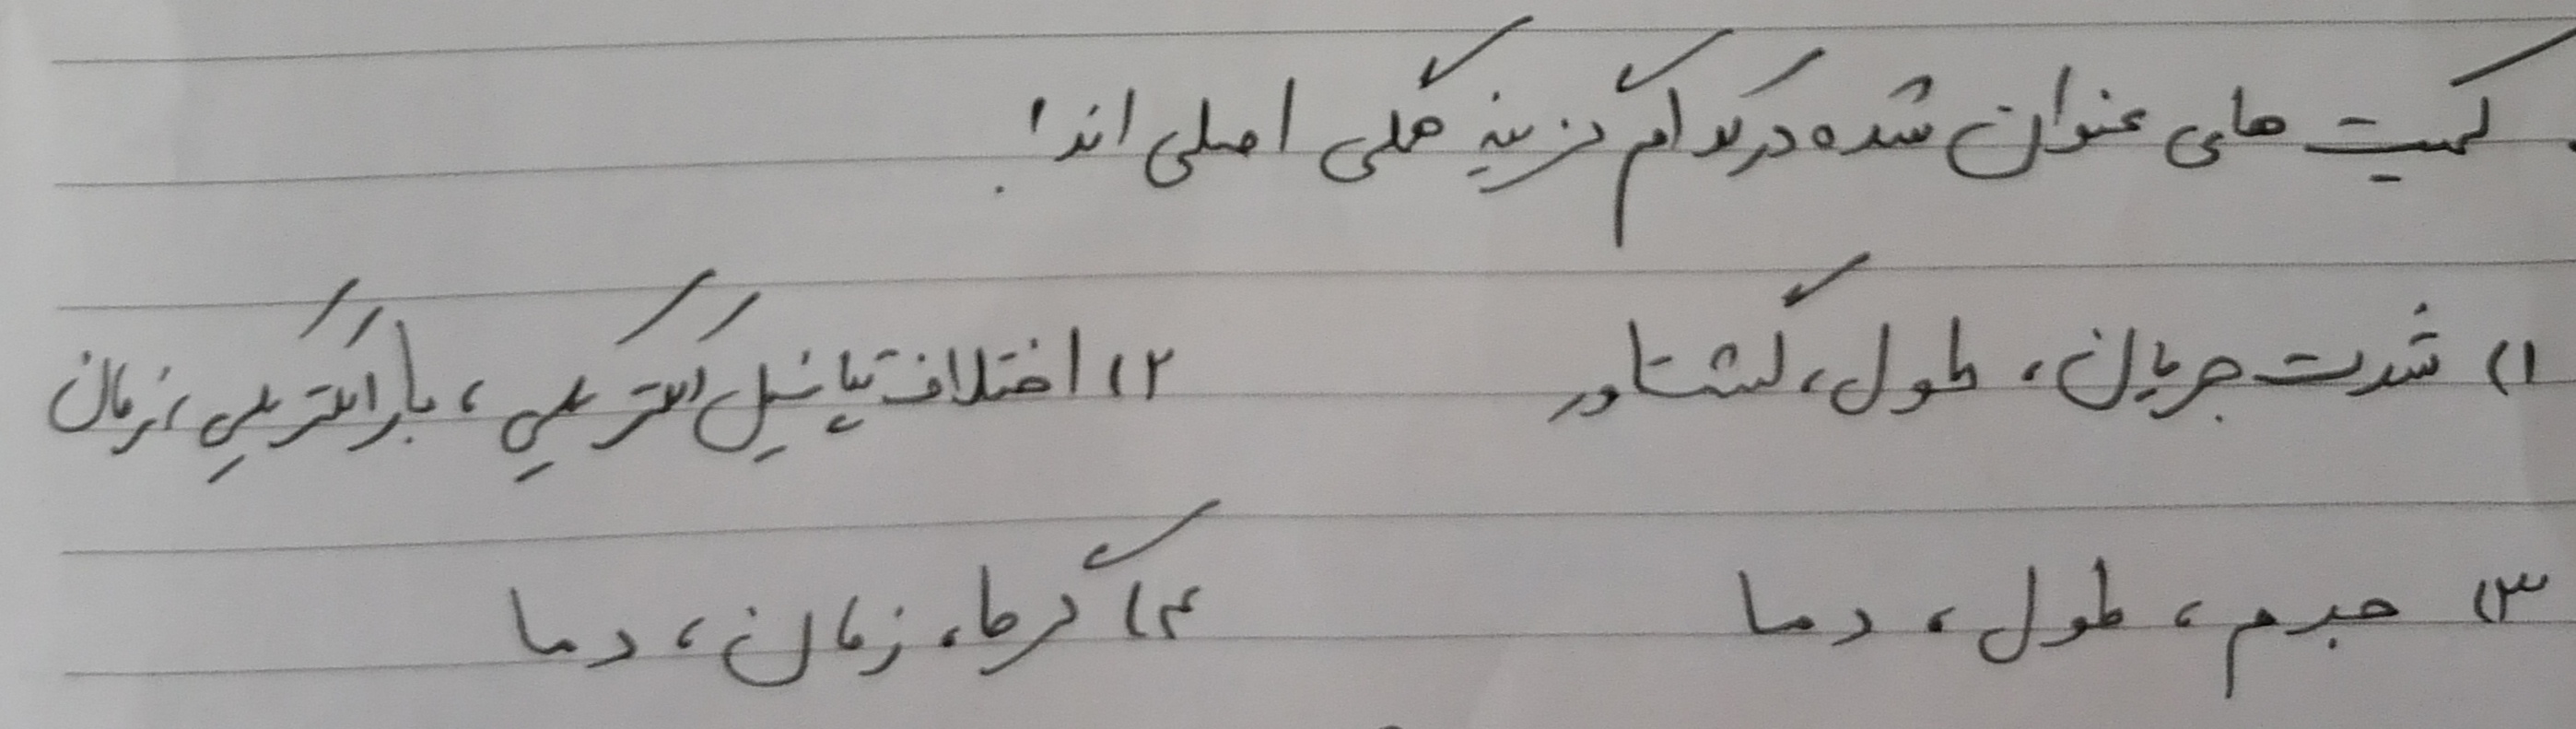 کمیت های عنوان شده در کدام گزینه همگی اصلی اند؟
۱) شدت جریان، طول، گشتاور ۲) اختلاف پتانسیل الکتریکی، بار الکتریکی، زمان
۳) جرم، طول، دما ۴) گرما، زمان، دما